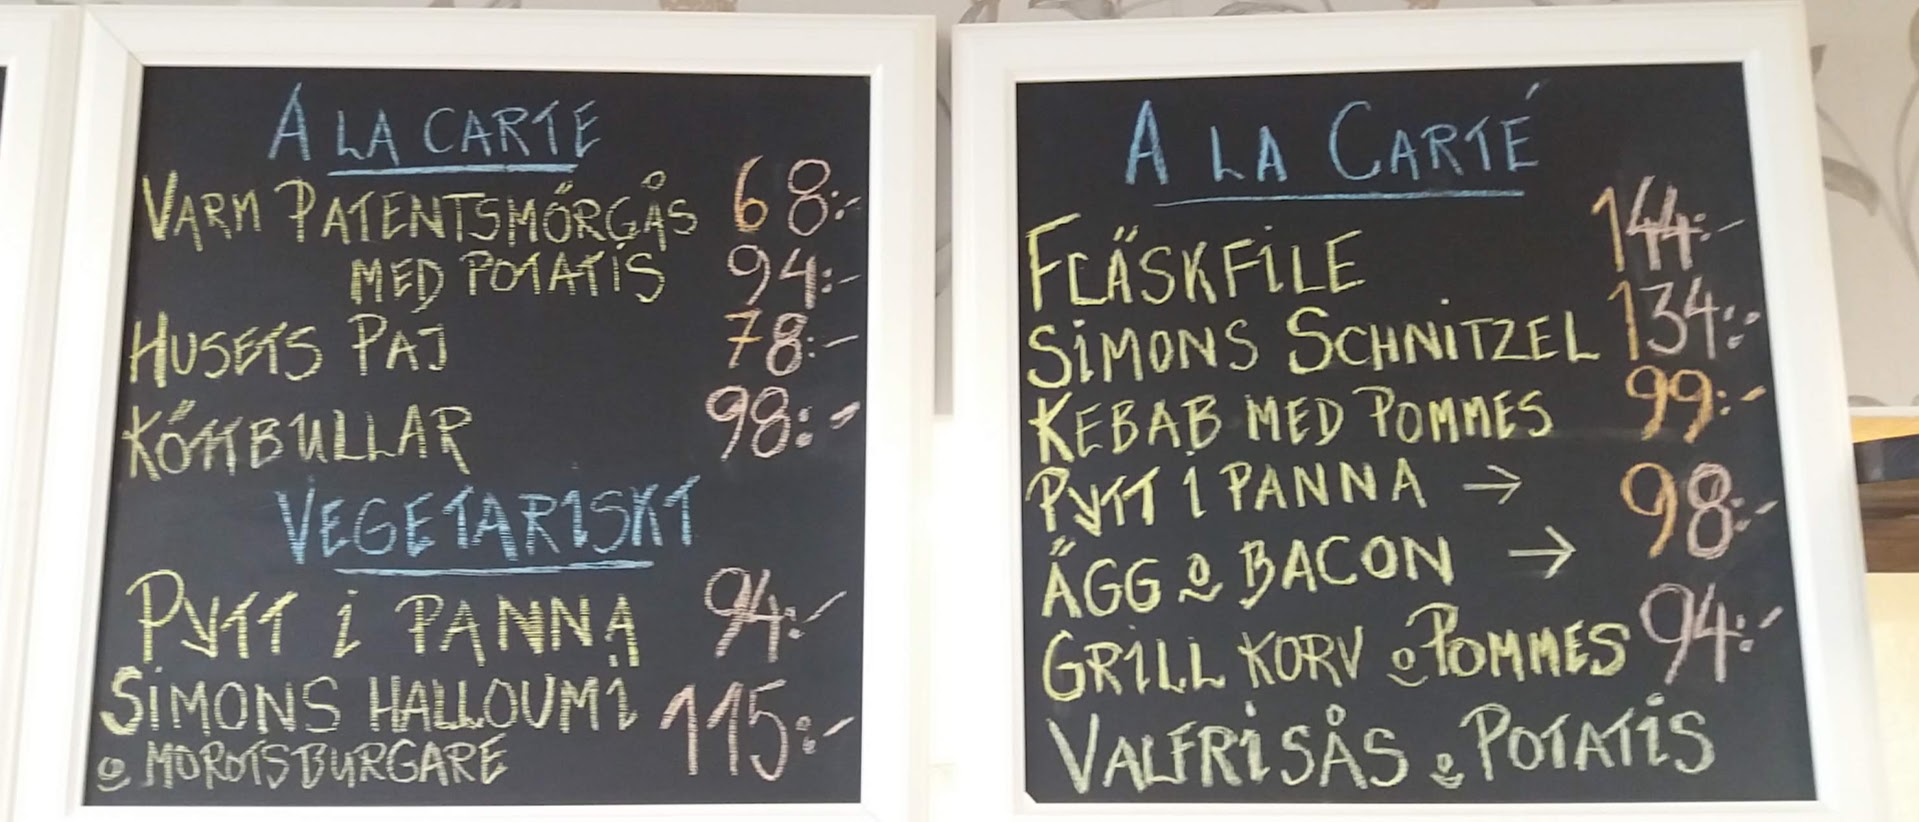 A LA CARTE
VARM PATENTSMÖRGÅS 68:-
MED POTATIS 94:-
HUSETS PAJ 78:-
KÖTTBULLAR 98:-
VEGETARISKT
PYTT i PANNA 94:-
SiMONS HALLOUMi
o MOROTSBURGARE 115:-
A LA CARTÉ
FLÄSKFiLE 144:-
SiMONS SCHNiTZEL 134:-
KEBAB MED POMMES 99:-
PYTT i PANNA →
ÄGG o BACON → 98:-
GRiLL KORV o POMMES 94:-
VALFRi SÅS o POTATiS